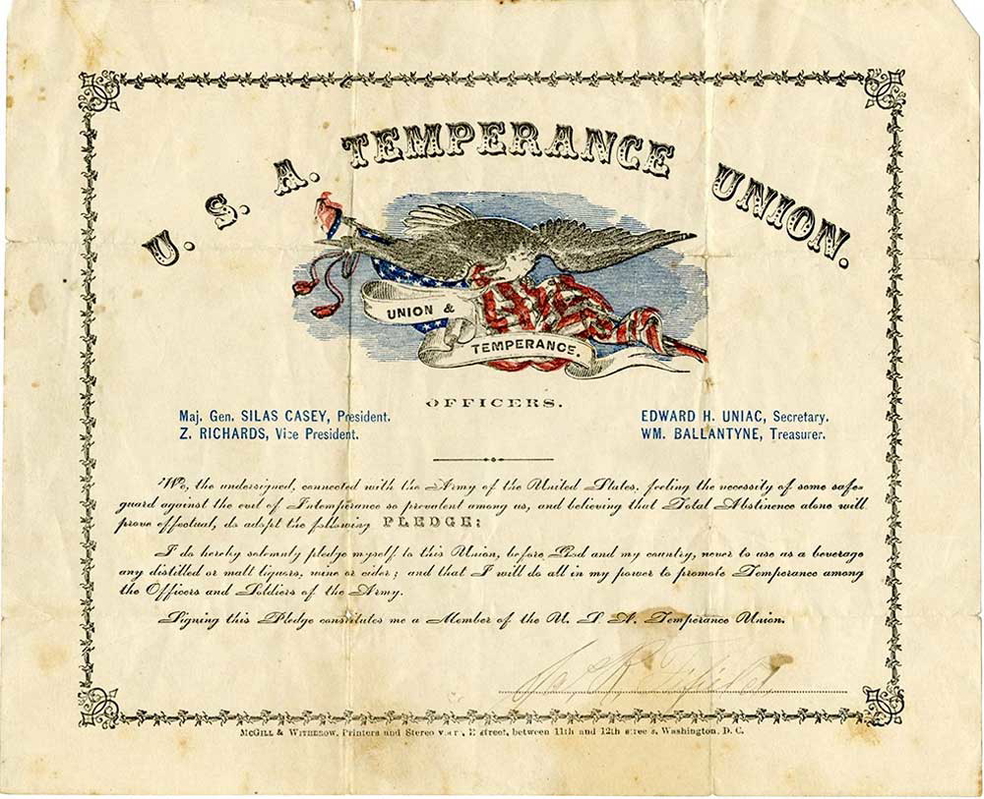 U. S. A. TEMPERANCE UNION.
UNION &
TEMPERANCE.
OFFICERS.
Maj. Gen. SILAS CASEY, President.
Z. RICHARDS, Vice President.
EDWARD H. UNIAC, Secretary.
WM. BALLANTYNE, Treasurer.
We, the undersigned, connected with the Army of the United States, feeling the necessity of some safe-
guard against the evil of Intemperance so prevalent among us, and believing that Total Abstinence alone will
prove effectual, do adopt the following PLEDGE:
I do hereby solemnly pledge myself to this Union, before God and my country, never to use as a beverage
any distilled or malt liquors, wine or cider; and that I will do all in my power to promote Temperance among
the Officers and Soldiers of the Army.
Signing this Pledge constitutes me a Member of the U. S. A. Temperance Union.
McGILL & WITHEROW, Printers and E street, between 11th and 12th streets, Washington, D. C.